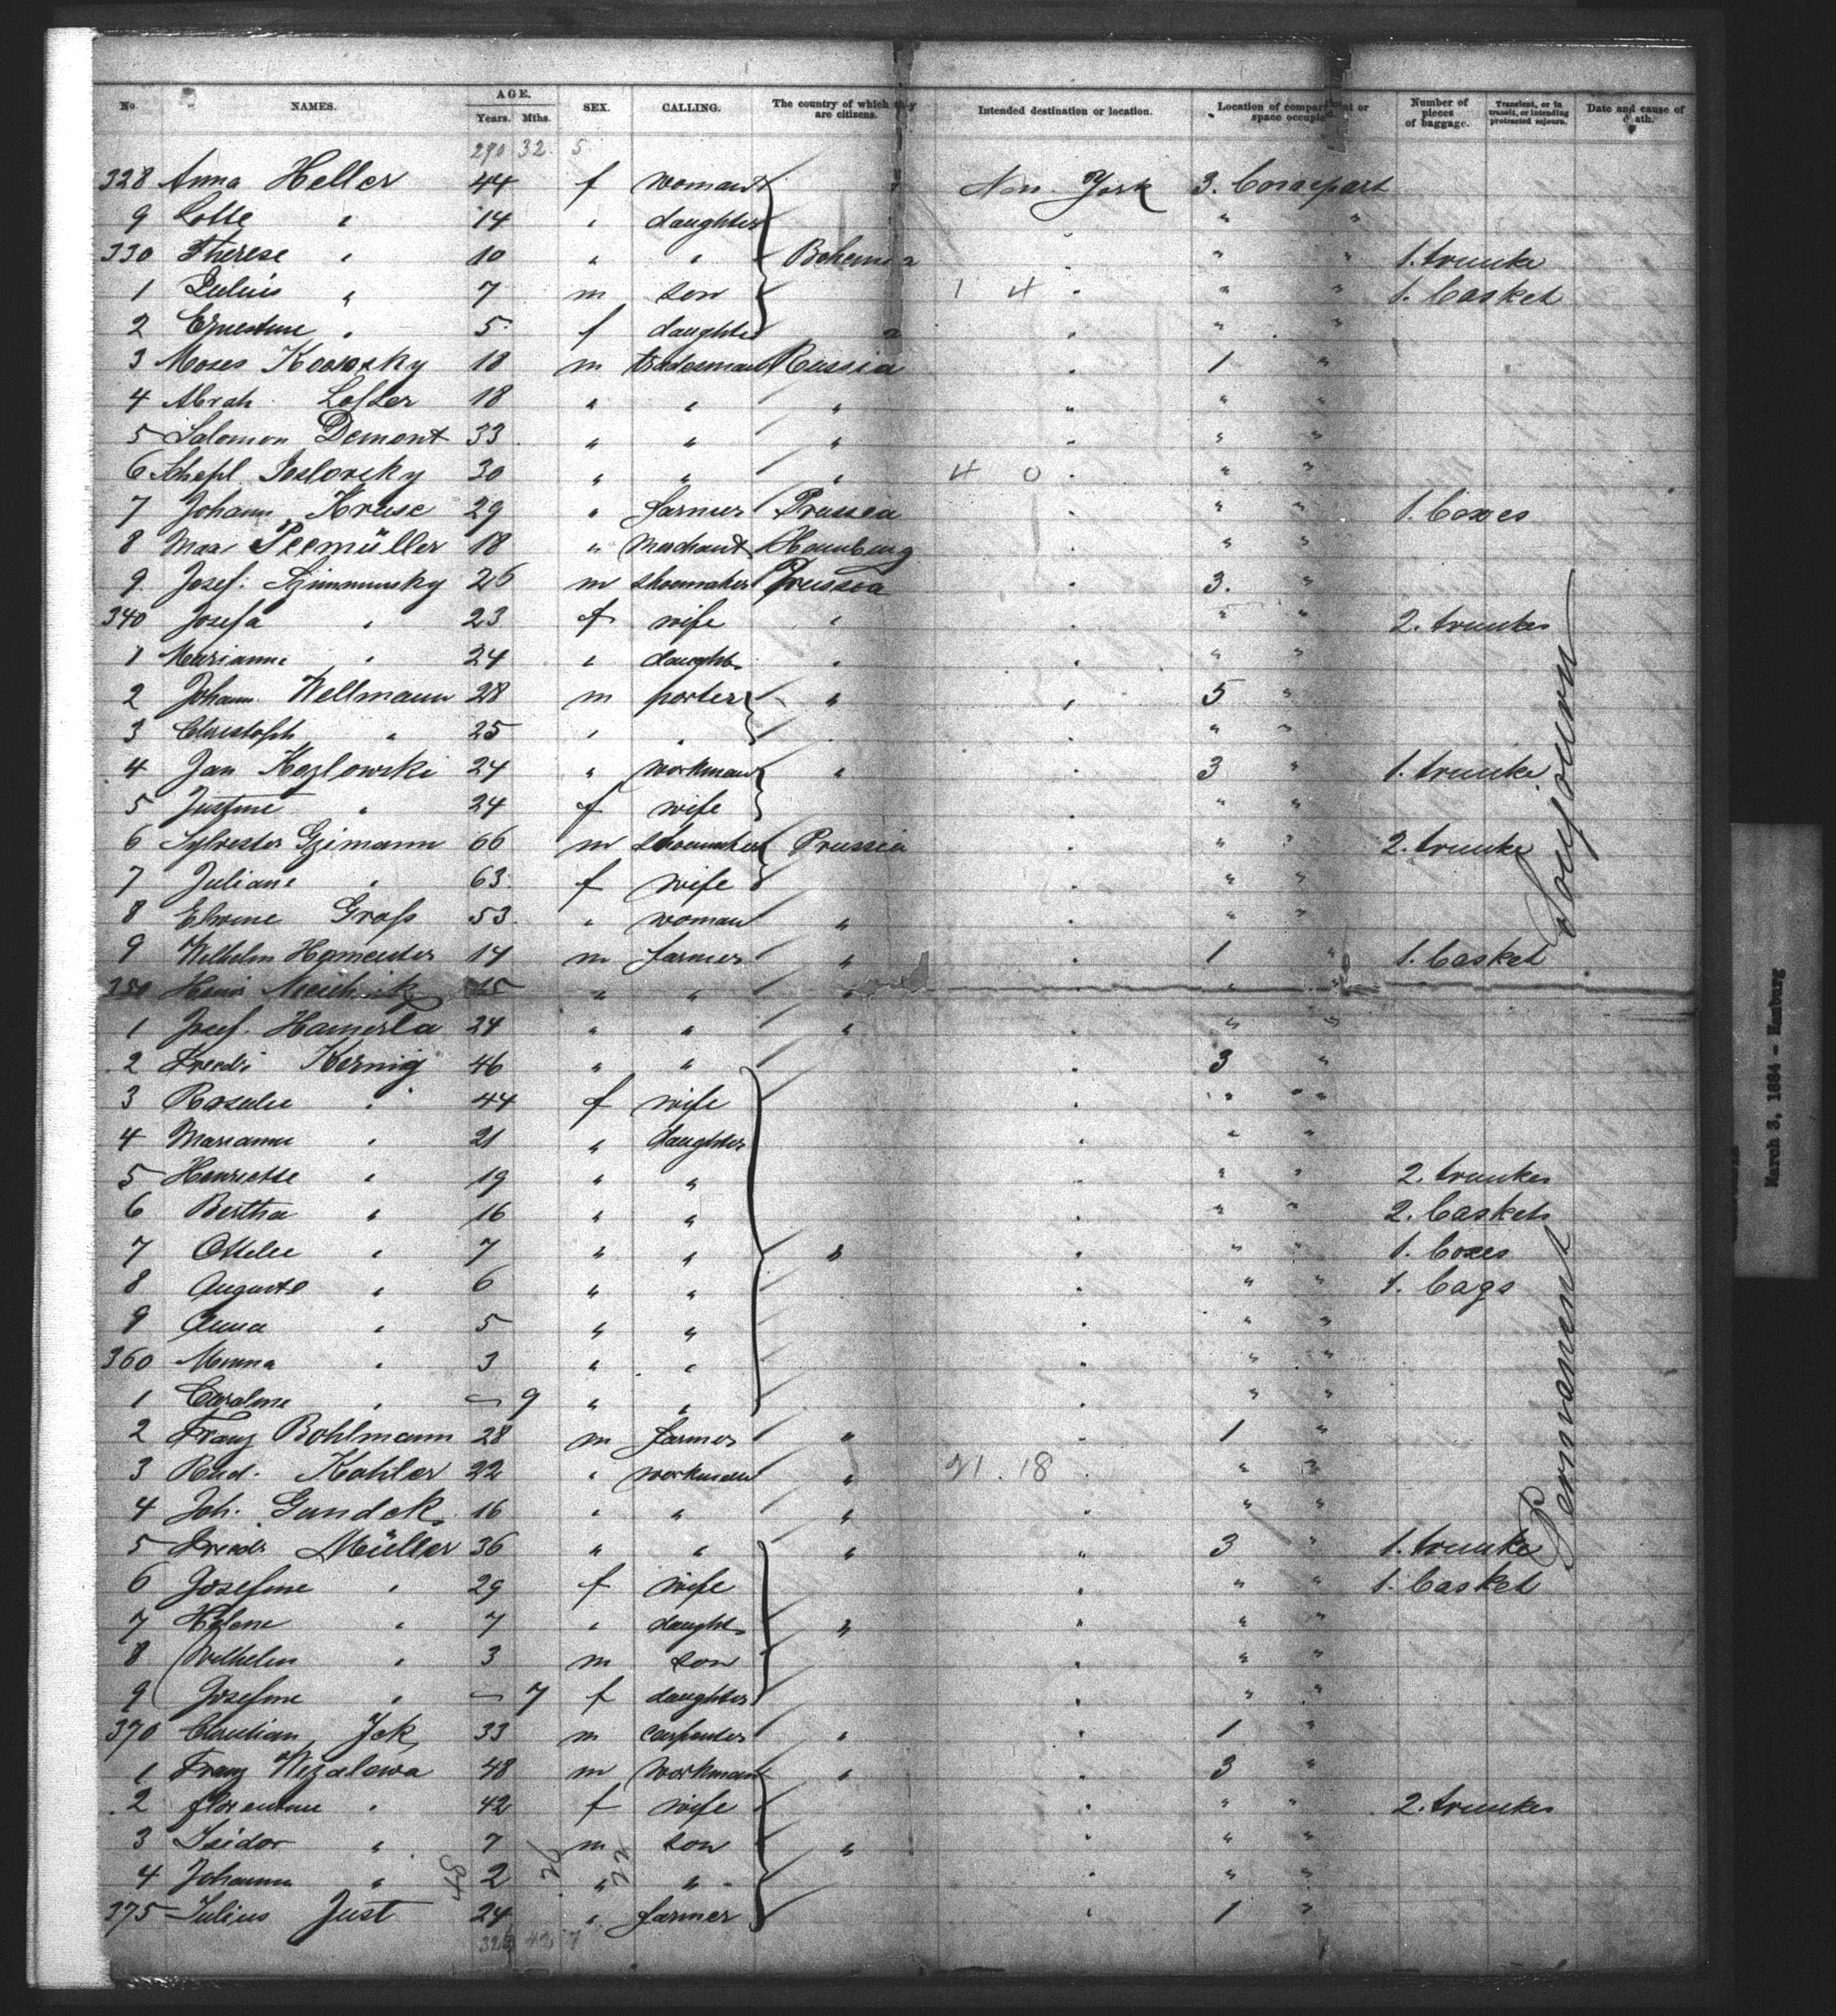 No. NAMES. AGE. Years. Mths. SEX. CALLING. The country of which they are citizens. Intended destination or location. Location of compartment or space occupied. Number of pieces of baggage. Transient, or in transit, or intending protracted sojourn. Date and cause of death.
290 32 5
328 Anna Heller 44 f woman New York 3. Compart
9 Lotte " 14 " daughter " "
330 Therese " 10 " " Bohemia " " " 1. trunke
1 Julius " 7 m son 1 4 " " " 1. basket
2 Ernestine " 5 f daughter " "
3 Moses 18 m tradesman Russia " 1 "
4 Abrah. 18 " " " " " "
5 Salomon Demont 33 " " " " " "
6 30 " " " 4 0 " " "
7 Johann Kruse 29 " farmer Prussia " " " 1. boxes
8 Max Peemüller 18 " merchant Hamburg " " "
9 Josef. 26 m shoemaker Prussia " 3. "
340 Josefa " 23 f wife " " " " 2. trunkes
1 Marianne " 24 " daught. " " " "
2 Johann Wellmann 28 m porter " " 5 "
3 Christoph " 25 " " " " " "
4 Jan Kozlowski 24 " workman " " 3 " 1. trunke
5 Justine " 24 f wife " " "
6 Sylvester Gzimann 66 m shoemaker Prussia " " " 2. trunke
7 Juliane " 63 f wife " " "
8 Elwine Groß 53 " woman " " " "
9 Wilhelm Hameister 14 m farmer " " 1 " 1. basket
350 15 " " " " "
1 Josef. Hamerla 24 " " " " " "
2 Friedr. Kernig 46 " " " 3 "
3 Rosalie " 44 f wife " " "
4 Marianne " 21 " daughter " " "
5 Henriette " 19 " " " " 2. trunkes
6 Bertha " 16 " " " " " 2. baskets
7 Ottilie " 7 " " " " " " 1. boxes
8 Auguste " 6 " " " " " 1. bags
9 Anna " 5 " " " " "
360 Minna " 3 " " " " "
1 Caroline " – 9 " " " " "
2 Franz Bohlmann 28 m farmer " " 1 "
3 Rud. Kohler 22 " workman " 21. 18 " " "
4 Joh. Gundek 16 " " " " " "
5 Friedr. Müller 36 " " " " 3 " 1. trunke
6 Josefine " 29 f wife " " " 1. basket
7 Helene " 7 " daught. " " " "
8 Wilhelm " 3 m son " " "
9 Josefine " – 7 f daughter " " "
370 Christian Jek 33 m carpenter " " 1 "
1 Franz Wezalowa 48 m workman " " 3 "
2 Florentine " 42 f wife " " " 2. trunkes
3 Isidor " 7 m son " " " "
4 Johann " 2 " " " " "
48 26 22
375 Julius Just 24 " farmer " 1 "
42 7
Sojourn
Permanent
March 3, 1884 - Hamburg